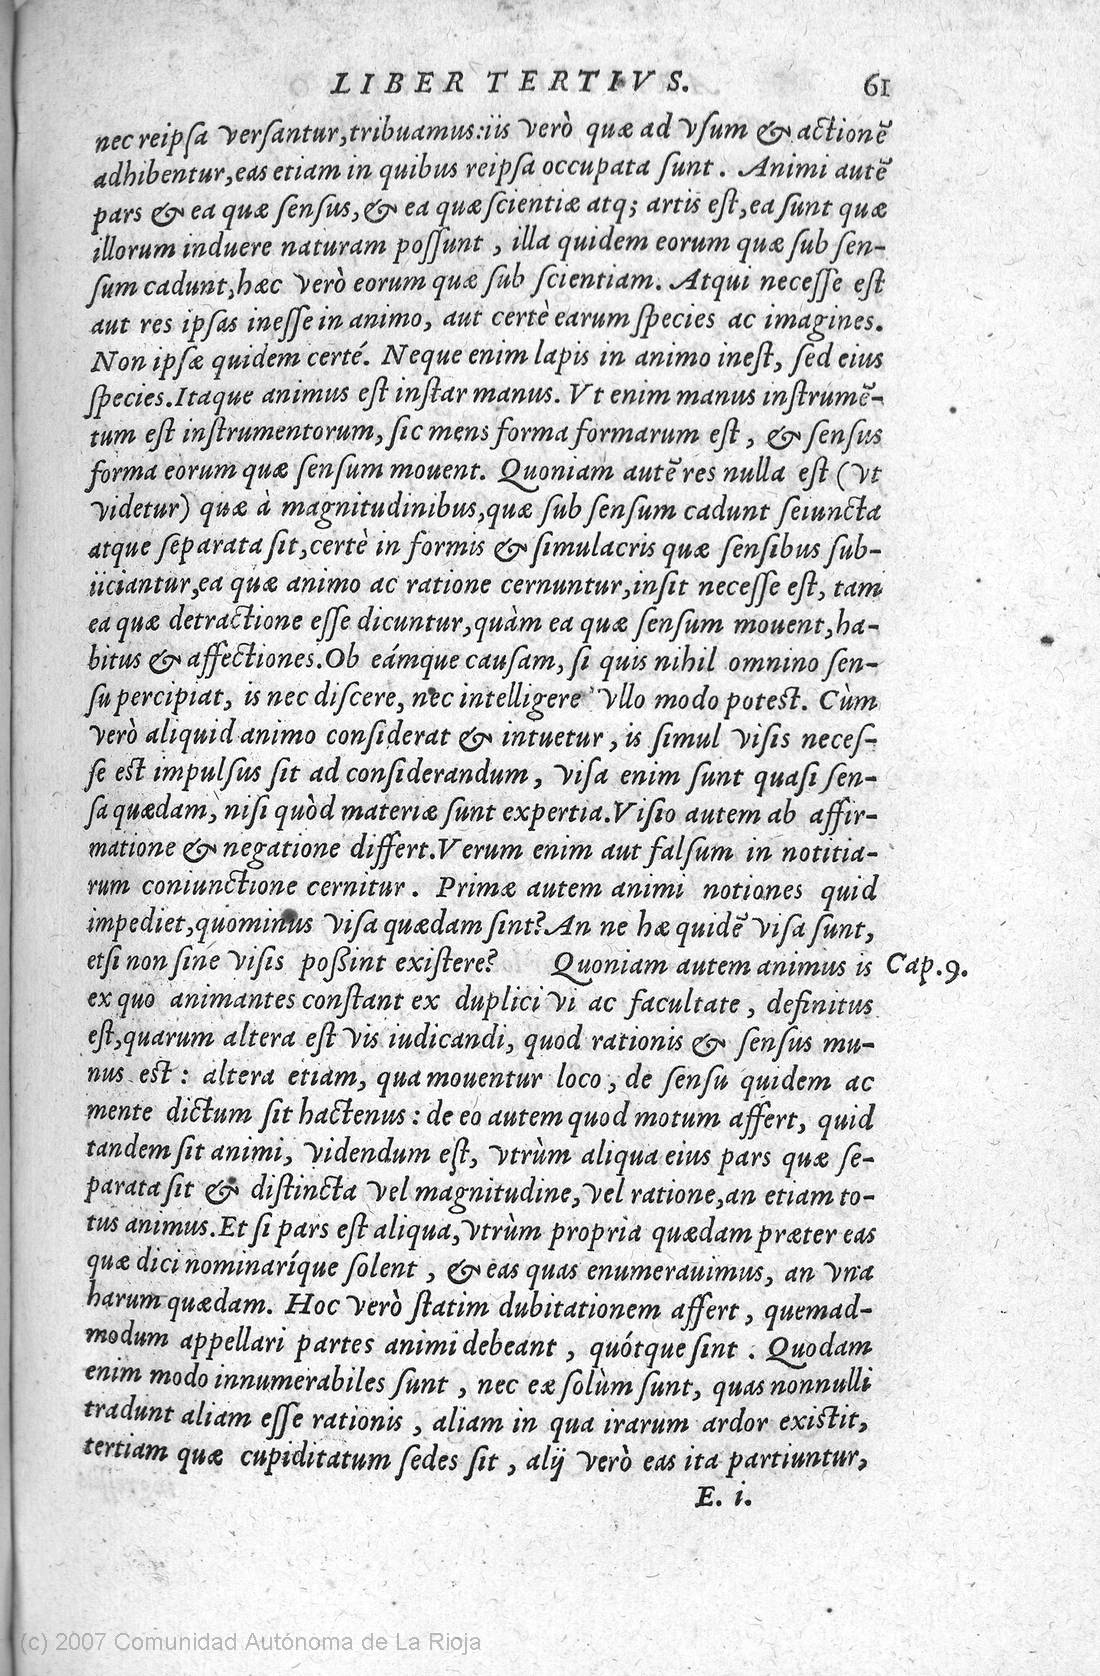 LIBER TERTIVS. 61
nec reipsa versantur, tribuamus: iis verò quæ ad vsum & actionē
adhibentur, eas etiam in quibus reipsa occupata sunt. Animi autē
pars & ea quæ sensus, & ea quæ scientiæ atq; artis est, ea sunt quæ
illorum induere naturam possunt, illa quidem eorum quæ sub sen-
sum cadunt, hæc verò eorum quæ sub scientiam. Atqui necesse est
aut res ipsas inesse in animo, aut certè earum species ac imagines.
Non ipsæ quidem certé. Neque enim lapis in animo inest, sed eius
species. Itaque animus est instar manus. Vt enim manus instrumē-
tum est instrumentorum, sic mens forma formarum est, & sensus
forma eorum quæ sensum mouent. Quoniam autē res nulla est (vt
videtur) quæ à magnitudinibus, quæ sub sensum cadunt seiuncta
atque separata sit, certè in formis & simulacris quæ sensibus sub-
iiciantur, ea quæ animo ac ratione cernuntur, insit necesse est, tam
ea quæ detractione esse dicuntur, quàm ea quæ sensum mouent, ha-
bitus & affectiones. Ob eámque causam, si quis nihil omnino sen-
su percipiat, is nec discere, nec intelligere vllo modo potest. Cùm
verò aliquid animo considerat & intuetur, is simul visis neces-
se est impulsus sit ad considerandum, visa enim sunt quasi sen-
sa quædam, nisi quòd materiæ sunt expertia. Visio autem ab affir-
matione & negatione differt. Verum enim aut falsum in notitia-
rum coniunctione cernitur. Primæ autem animi notiones quid
impediet, quominus visa quædam sint? An ne hæ quidē visa sunt,
etsi non sine visis poßint existere? Quoniam autem animus is Cap. 9.
ex quo animantes constant ex duplici vi ac facultate, definitus
est, quarum altera est vis iudicandi, quod rationis & sensus mu-
nus est: altera etiam, qua mouentur loco, de sensu quidem ac
mente dictum sit hactenus: de eo autem quod motum affert, quid
tandem sit animi, videndum est, vtrùm aliqua eius pars quæ se-
parata sit & distincta vel magnitudine, vel ratione, an etiam to-
tus animus. Et si pars est aliqua, vtrùm propria quædam præter eas
quæ dici nominaríque solent, & eas quas enumerauimus, an vna
harum quædam. Hoc verò statim dubitationem affert, quemad-
modum appellari partes animi debeant, quótque sint. Quodam
enim modo innumerabiles sunt, nec eæ solùm sunt, quas nonnulli
tradunt aliam esse rationis, aliam in qua irarum ardor existit,
tertiam quæ cupiditatum sedes sit, alij verò eas ita partiuntur,
E. i.
(c) 2007 Comunidad Autónoma de La Rioja